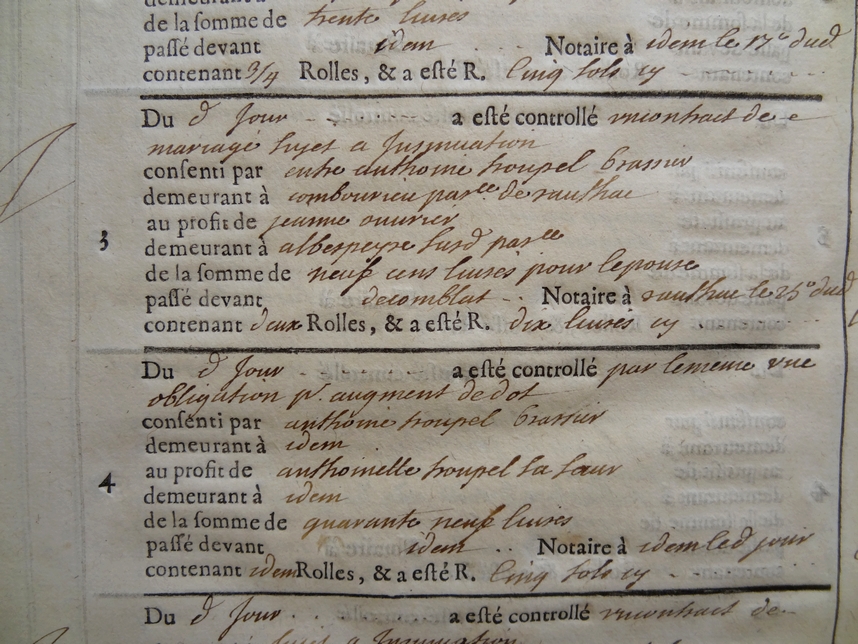 de la somme de trente liures
passé devant idem Notaire à idem le 17e dud
contenant 3/4 Rolles, & a esté R. Cinq sols cy
Du d Jour a esté controllé vn contract de
mariage sujet a Insinuation
consenti par entre anthoine troupel brassier
demeurant à combourieu parce de raulhac
au profit de jeanne ouurier
3 demeurant à albespeyre susd parce
de la somme de neuf cens liures pour lepouse
passé devant decomblat Notaire à raulhac le 25e dud
contenant deux Rolles, & a esté R. dix liures cy
Du d Jour a esté controllé par lemême vne
obligation pr. augment de dot
consenti par anthoine troupel brassier
demeurant à idem
au profit de anthoinette troupel sa sœur
4 demeurant à idem
de la somme de quarante neuf liures
passé devant idem Notaire à idem led jour
contenant idem Rolles, & a esté R. Cinq sols cy
Du d Jour a esté controllé vn contract de
sujet a Insinuation